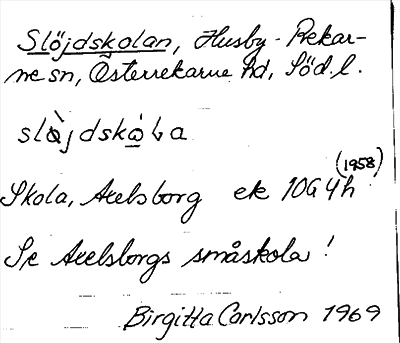 Slöjdskolan, Husby-Rekar-
ne sn, Österrekarne hd, Söd. l.
slò̀jdskò̠ɩa
Skola, Axelsborg ek 10G 4h (1958)
Se Axelsborgs småskola!
Birgitta Carlsson 1969